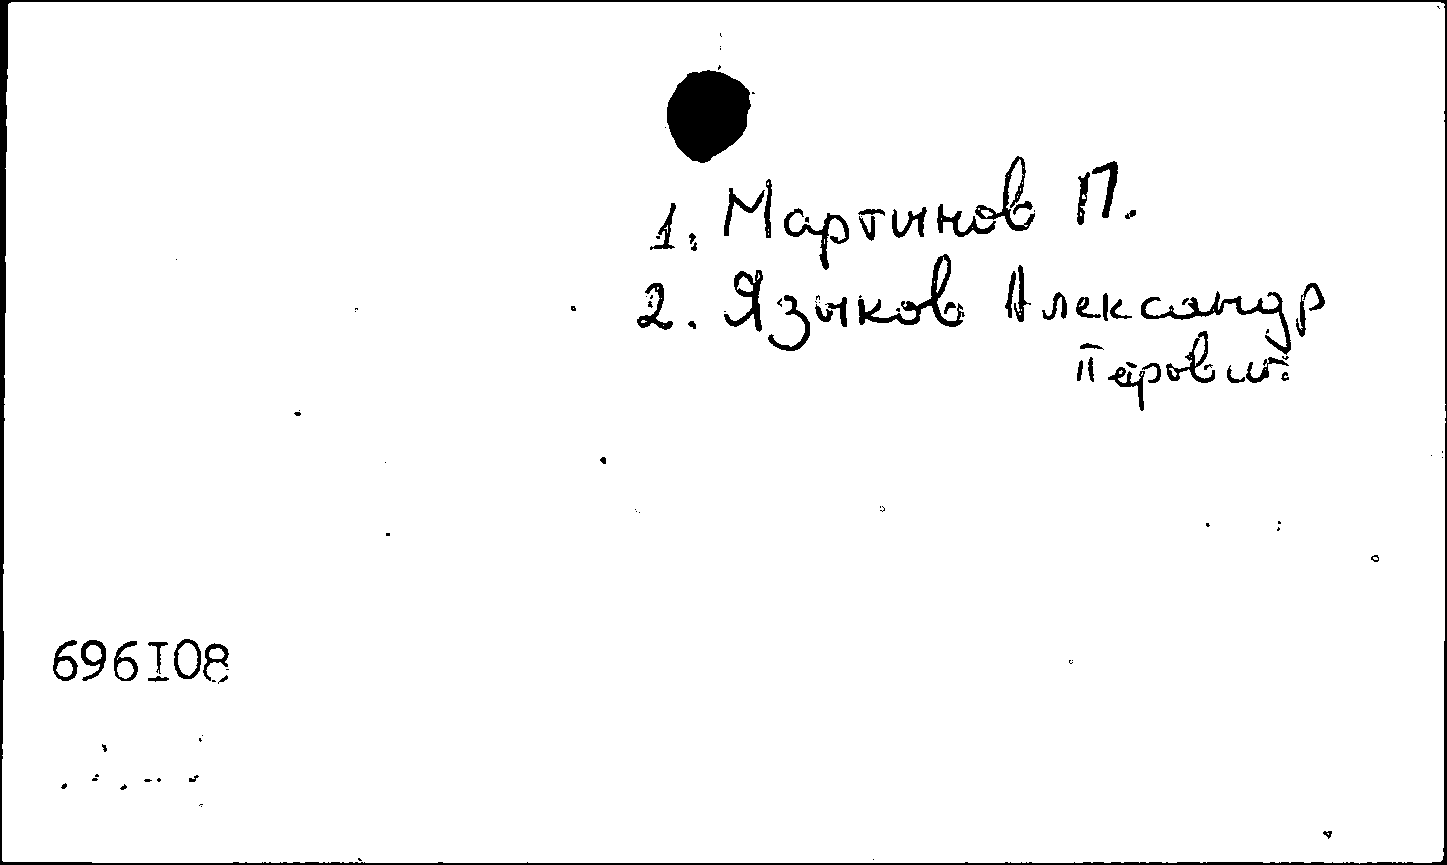 1. Мартынов П.
2. Языков Александр
Петрович.
696I08